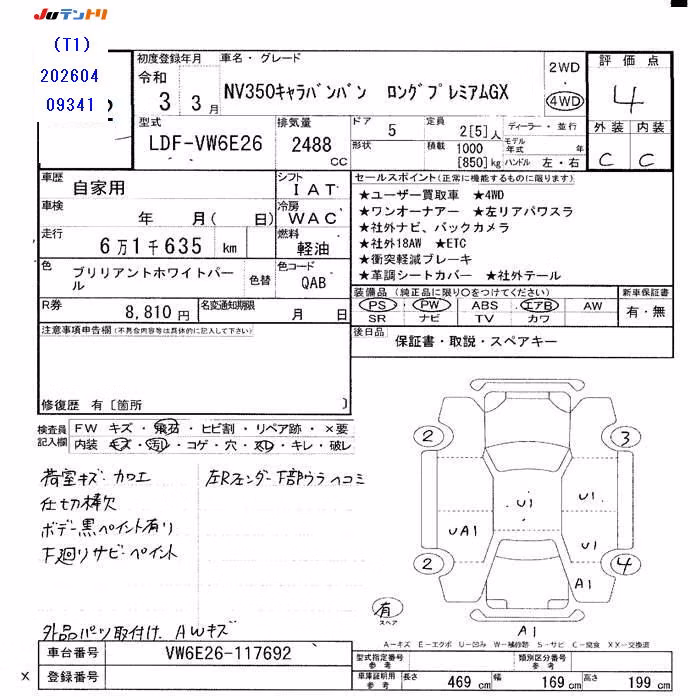 JUテントリ
(T1)
202604
09341
初度登録年月
令和
3 3月
車名・グレード
NV350キャラバンバン ロングプレミアムGX
2WD
・
4WD
評価点
4
外装 内装
C C
型式
LDF-VW6E26
排気量
2488
CC
ドア
5
形状
定員
2[5]人
積載 1000
[850]kg
ディーラー・並行
モデル
年式 年
ハンドル 左・右
車歴
自家用
シフト
IAT
車検
年 月( 日)
冷房
WAC
走行
6万1千635 km
燃料
軽油
色
ブリリアントホワイトパー
ル
色替
色コード
QAB
R券
8,810円
名変通知期限
月 日
セールスポイント(正常に機能するものに限ります)
★ユーザー買取車 ★4WD
★ワンオーナアー ★左リアパワスラ
★社外ナビ、バックカメラ
★社外18AW ★ETC
★衝突軽減ブレーキ
★革調シートカバー ★社外テール
装備品(純正品に限り○をつけてください)
PS PW ABS エアB AW
SR ナビ TV カワ
新車保証書
有・無
後日品
保証書・取説・スペアキー
注意事項申告欄(不具合内容等は具体的に記入して下さい)
修復歴 有〔箇所 〕
検査員
記入欄
FW キズ・飛石・ヒビ割・リペア跡・×要
内装 キズ・汚レ・コゲ・穴・スレ・キレ・破レ
荷室キズ・カロエ
仕切棒欠
ボデー黒ペイント有り
下廻りサビ・ペイント
左Rフェンダー下部ウラヘコミ
外品パーツ取付け AWキズ
2 3
U1 U1
UA1 U1
2 4
A1
有
スペア
A1
A-キズ E-エクボ U-凹み W-補修跡 S-サビ C-腐食 XX-交換済
車台番号
VW6E26-117692
× 登録番号
型式指定番号
参考
類別区分番号
参考
車庫証明用
参考
長さ 469 cm 幅 169 cm 高さ 199 cm